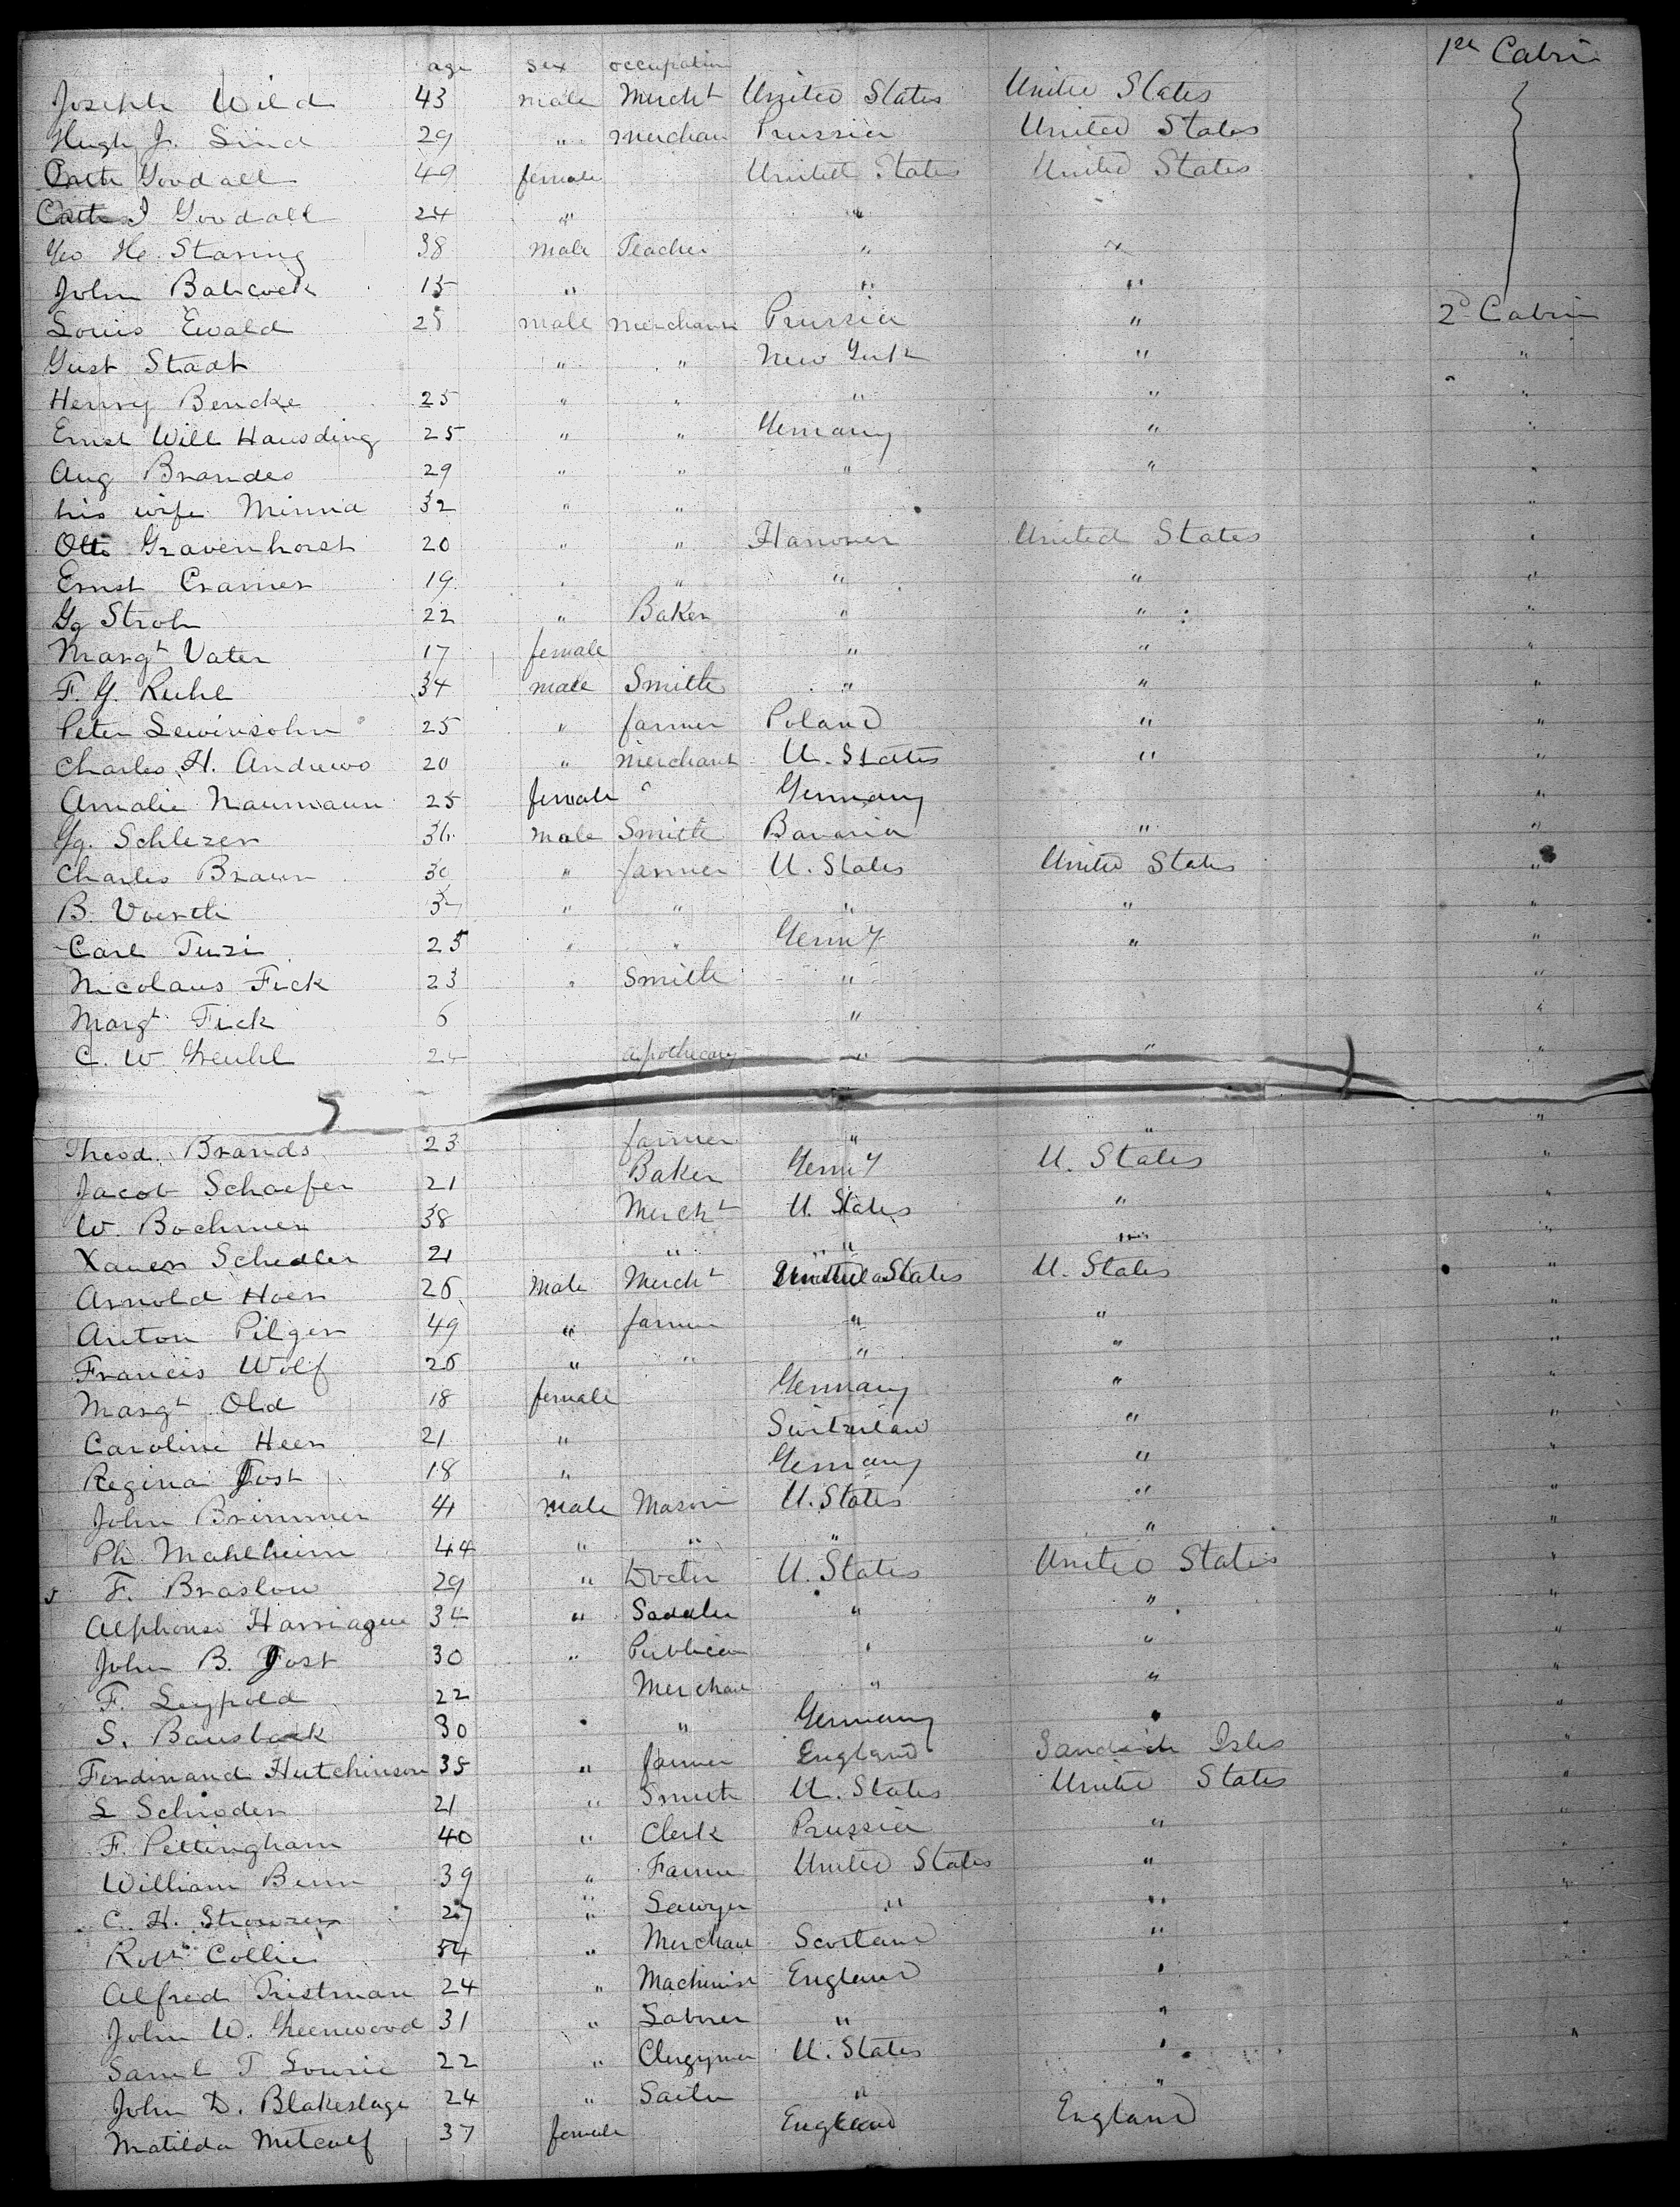 age sex occupation 1st Cabin
Joseph Wild 43 male Mercht United States United States
Hugh J. Lind 29 " merchan Prussia United States
Goodall 49 female United States United States
Cath J Goodall 24 " "
Geo He. Staring 38 male Teacher " "
John Babcock 15 " " "
Louis Ewald 25 male merchant Prussia " 2d Cabin
Gust Stadt " " New York " "
Henry Bencke 25 " " " " "
Ernst Will Hausding 25 " " Germany " "
Aug Brandes 29 " " " " "
his wife Minna 32 " " "
Otto Gravenhorst 20 " " Hanover United States "
Ernst Cramer 19 " " " " "
Gg Stroh 22 " Baker " " "
Margt Vater 17 female " " "
F. G. Ruhl 34 male Smith " " "
Peter Lewinsohn 25 " farmer Poland " "
Charles H. Andrews 20 " merchant U. States " "
Amalie Naumann 25 female " Germany "
Gg. Schlezer 36 male Smith Bavaria " "
Charles Braun 30 " farmer U. States United States "
B. Voerth " " " " "
Carl Tuzi 25 " " Germy " "
Nicolaus Fick 23 " Smith " "
Margt Fick 6 " "
C. W. Greuhl apothecary " " "
Theod. Brands 23 farmer " " "
Jacob Schaefer 21 Baker Germy U. States "
W. Bochmer 38 Mercht U. States " "
Xaver Schedler 21 " " " "
Arnold Hoer 26 Male Mercht States U. States "
Anton Pilger 49 " farmer " " "
Francis Wolf 26 " " " " "
Margt Old 18 female Germany " "
Caroline Heer 21 " Switzerland " "
Regina Jost 18 " Germany " "
John Brimmer 41 male Mason U. States " "
Ph. Mahlheim 44 " " " " "
F. Braslow 29 " Doctor U. States United States "
Alphonse Harriague 34 " Saddler " " "
John B. Jost 30 " Publican " " "
F. Leypold 22 Merchan " " "
S. Bausback 30 " " Germany " "
Ferdinand Hutchinson 35 " farmer England Sandwich Isles "
L Schroder 21 " Smith U. States United States "
F. Pettingham 40 " Clerk Prussia "
William Benn 39 " Farmer United States "
C. H. 27 " Lawyer " "
Robt Collie 54 " Merchant Scotland "
Alfred Tristman 24 " Machinist England "
John W. Greenwood 31 " Laborer " "
Saml T Lourie 22 " Clergyman U. States " "
John D. Blakeslage 24 " Sailor " "
Matilda Metcalf 37 female England England